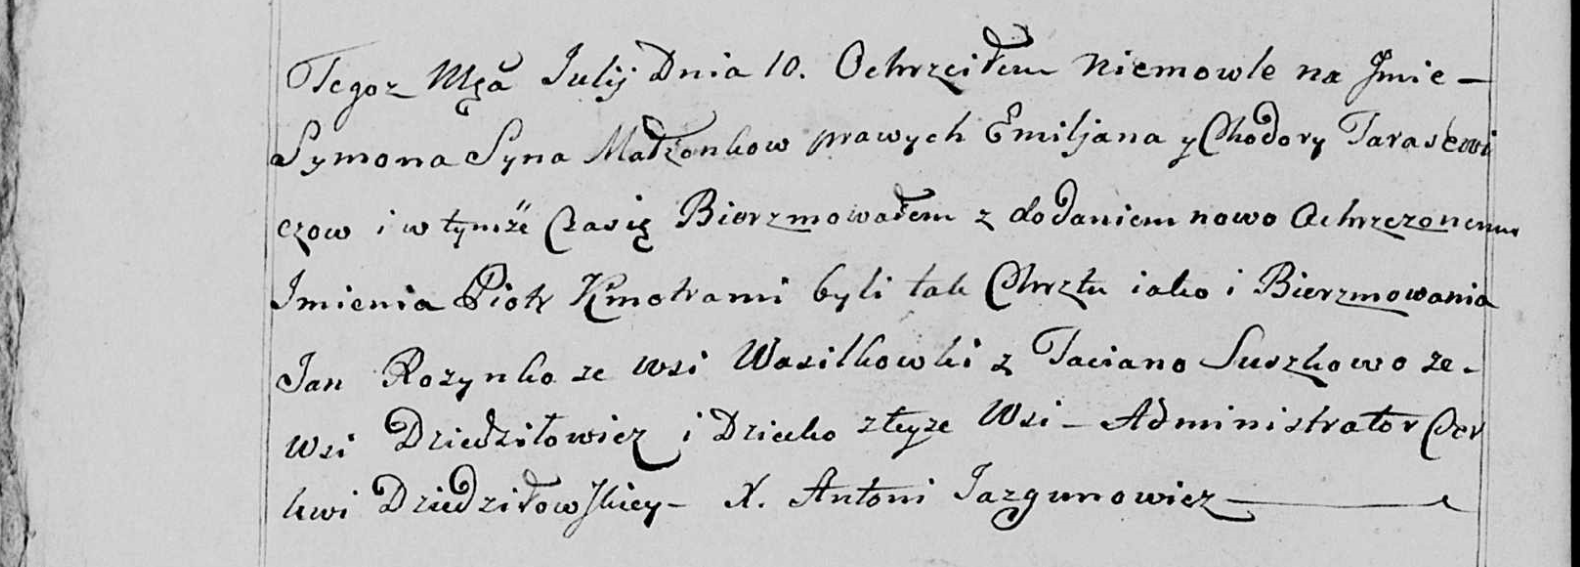 Tegoz Mca Julij Dnia 10. Ochrzciłem Niemowle na Jmie —
Symona Syna Małzonkow prawych Emiljana y Chodory Taraskewi
czow i w tymże Czasię Bierzmowałem z dodaniem nowo Ochrzczonemu
Jmienia Piotr Kmotrami byli tak Chrztu iako i Bierzmowania
Jan Rozynko ze Wsi Wasilkowki z Taciano Suszkowo ze -
Wsi Dziedziłowicz i Dziecko zteyze Wsi - Administrator Cer
kwi Dziedziłowskiey - X. Antoni Jazgunowicz —